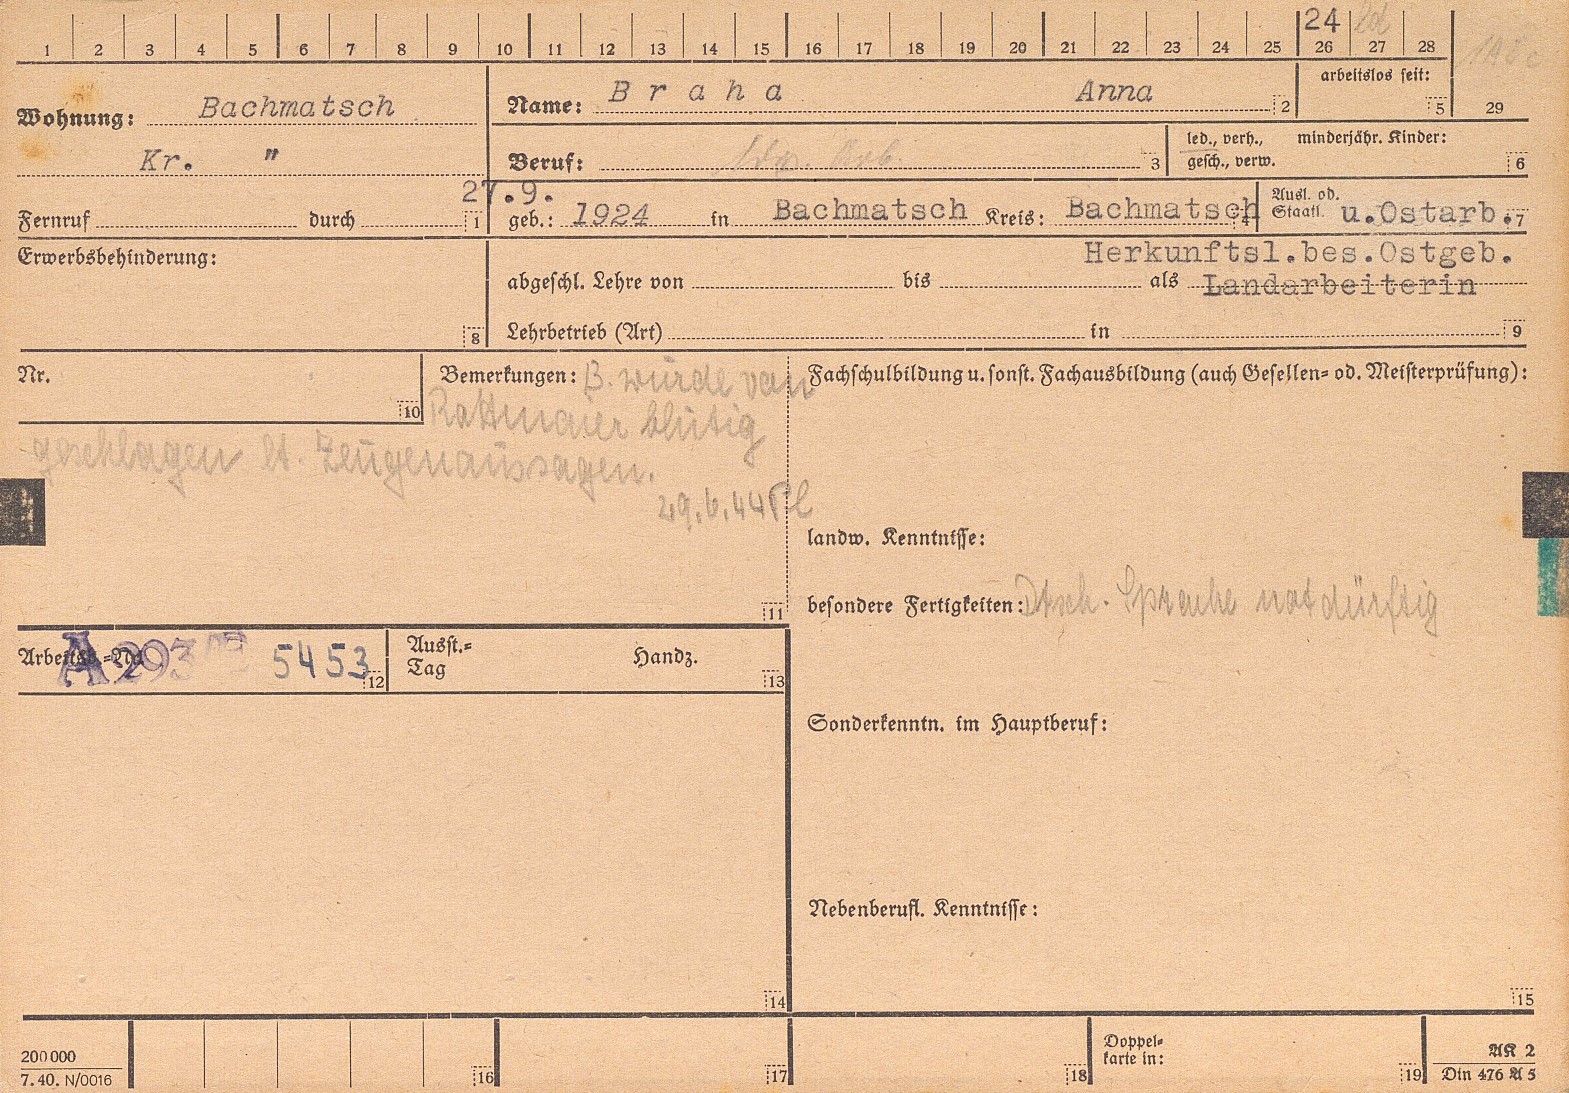 1 2 3 4 5 6 7 8 9 10 11 12 13 14 15 16 17 18 19 20 21 22 23 24 25 26 27 28 29
24 ld
Wohnung: Bachmatsch
Kr. "
Fernruf durch 1
Name: Braha Anna 2
arbeitslos seit: 5
Beruf: 3
led., verh.,
gesch., verw.
minderjähr. Kinder: 6
27.9.
geb.: 1924 in Bachmatsch Kreis: Bachmatsch 4
Ausl. od.
Staatl. u.Ostarb. 7
Erwerbsbehinderung: 8
Herkunftsl.bes.Ostgeb.
abgeschl. Lehre von bis als Landarbeiterin
Lehrbetrieb (Art) in 9
Nr. 10
Bemerkungen: B. wurde von
Rottmaier blutig
geschlagen lt. Zeugenaussagen.
29.6.44 Pl
11
Fachschulbildung u. sonst. Fachausbildung (auch Gesellen= od. Meisterprüfung):
landw. Kenntnisse:
besondere Fertigkeiten: Dtsch. Sprache notdürftig
Arbeitsb.=Nr. A 293 5453 12
Ausst.=
Tag
Handz. 13
Sonderkenntn. im Hauptberuf:
Nebenberufl. Kenntnisse:
14
15
200 000
7. 40. N/0016
16
17
18
Doppel=
karte in: 19
AK 2
Din 476 A 5